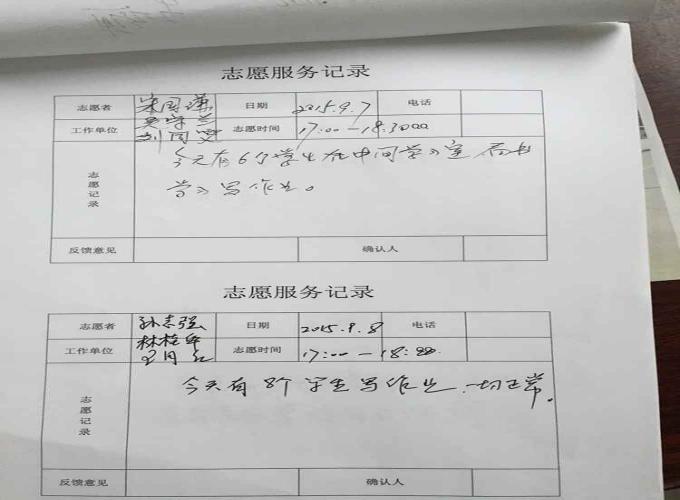 志愿服务记录
志愿者 朱国谦 日期 2015.9.7 电话
吴守兰
工作单位 刘国 志愿时间 17:00—18:30
志愿记录
今天有6个学生在中间学习室看书
学习写作业。
反馈意见 确认人
志愿服务记录
志愿者 孙志强 日期 2015.9.8 电话
林桂华
工作单位 王月红 志愿时间 17:00—18:
志愿记录
今天有8个学生写作业,一切正常。
反馈意见 确认人